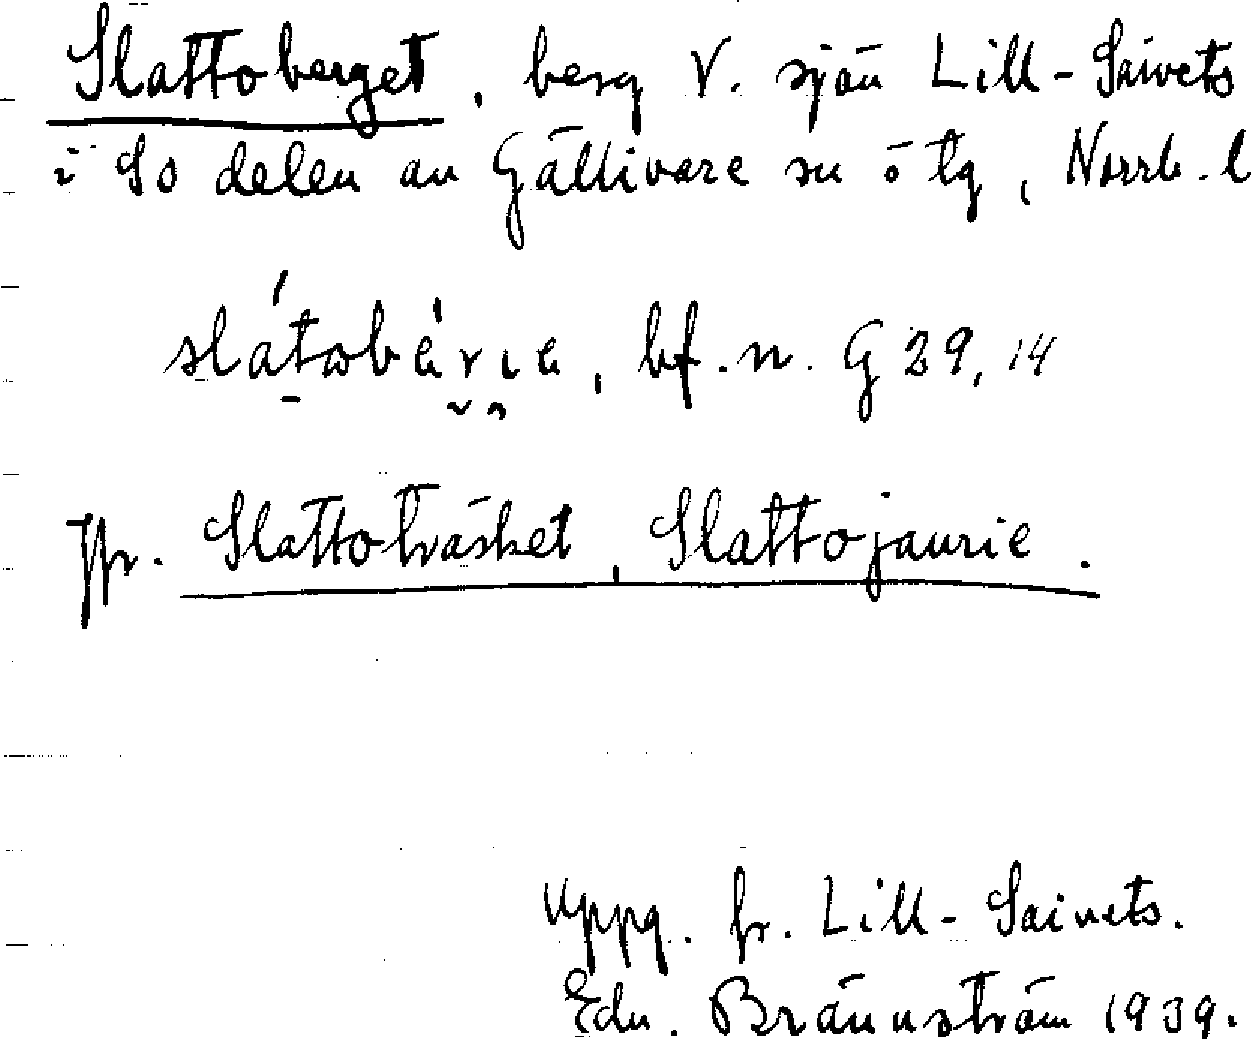 Slattoberget, berg V. sjön Lill-Saivets
i So delen av Gällivare sn o tg, Norrb. l
bf. n. G 29, 14
Jfr. Slattoträsket, Slattojaurie.
Uppg. fr. Lill-Saivets.
Edv. Brännström 1939.